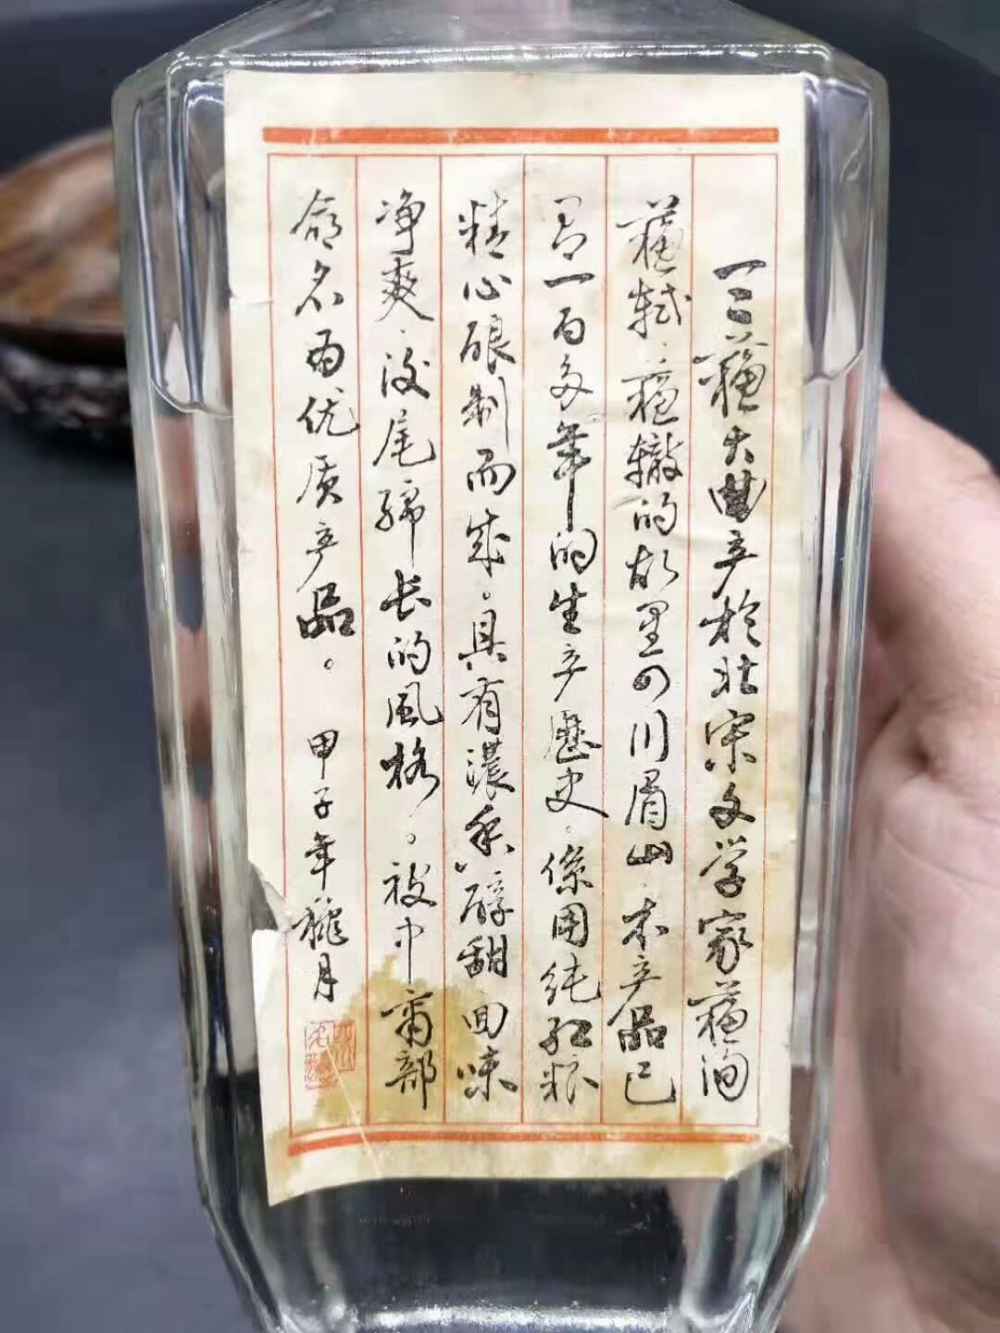 三蘇大曲产於北宋文学家蘇洵
蘇轼、蘇辙的故里四川眉山,本产品已
有一百多年的生产歷史。係用纯红粮
精心酿制而成。具有濃香醇甜回味
净爽、後尾绵长的風格。被中商部
命名为优质产品。 甲子年龍月